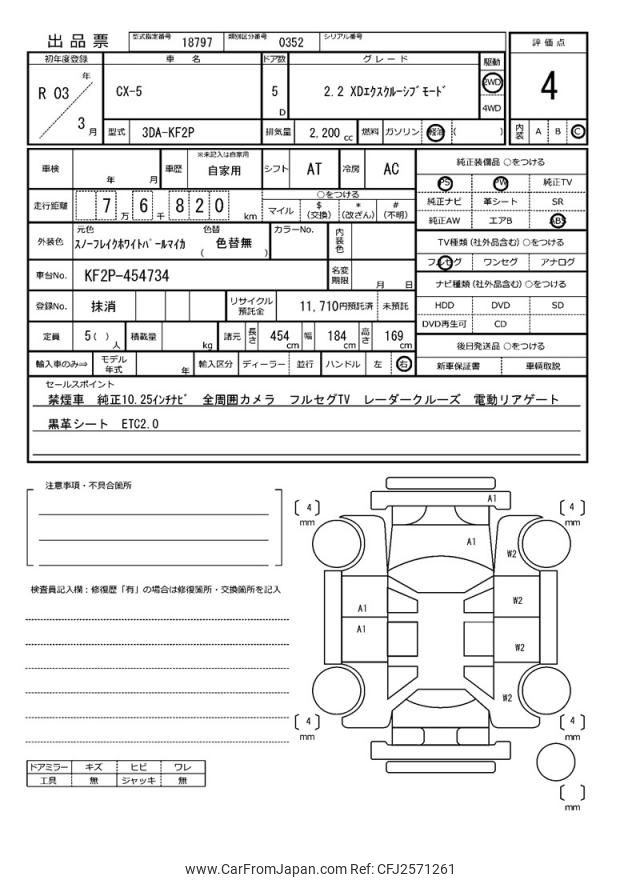 出品票
型式指定番号 18797 類別区分番号 0352 シリアル番号
初年度登録 車名 ドア数 グレード 駆動 評価点
R 03 年 3 月
CX-5
5 D
2.2 XDエクスクルーシブモード
2WD
4WD
4
型式 3DA-KF2P 排気量 2,200 cc 燃料 ガソリン 軽油 ( )
内装 A B C
車検 年 月 車歴 ※未記入は自家用 自家用 シフト AT 冷房 AC
走行距離 7 万 6 千 8 2 0 km
○をつける
マイル $ (交換) * (改ざん) # (不明)
外装色 元色 スノーフレイクホワイトパールマイカ 色替 ( 色替無 ) カラーNo. 内装色
車台No. KF2P-454734 名変期限 月 日
登録No. 抹消 リサイクル預託金 11,710円預託済 未預託
定員 5( ) 人 積載量 kg 諸元 長さ 454 cm 幅 184 cm 高さ 169 cm
輸入車のみ⇒ モデル年式 年 輸入区分 ディーラー 並行 ハンドル 左 右
純正装備品 ○をつける
PS PW 純正TV
純正ナビ 革シート SR
純正AW エアB ABS
TV種類 (社外品含む) ○をつける
フルセグ ワンセグ アナログ
ナビ種類 (社外品含む) ○をつける
HDD DVD SD
DVD再生可 CD
後日発送品 ○をつける
新車保証書 車輌取説
セールスポイント
禁煙車 純正10.25インチナビ 全周囲カメラ フルセグTV レーダークルーズ 電動リアゲート
黒革シート ETC2.0
注意事項・不具合箇所
検査員記入欄：修復歴「有」の場合は修復箇所・交換箇所を記入
ドアミラー キズ ヒビ ワレ
工具 無 ジャッキ 無
A1
[ 4 ] mm
[ 4 ] mm
A1
W2
A1
W2
A1
W2
W2
[ 4 ] mm
[ 4 ] mm
[ ] mm
www.CarFromJapan.com Ref: CFJ2571261